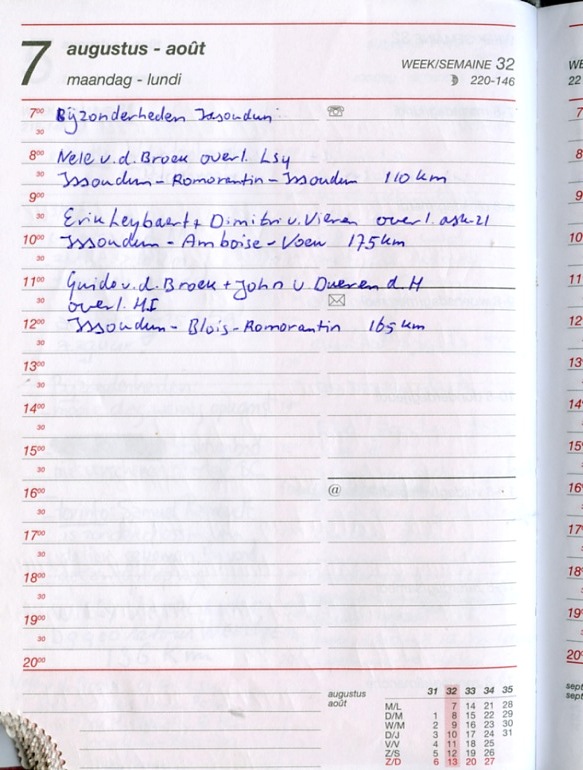 7 augustus - août
maandag - lundi
WEEK/SEMAINE 32
220-146
7⁰⁰ Bijzonderheden Issoudun
30
8⁰⁰ Nele v.d. Broek overl. LS4
30 Issoudun - Romorantin - Issoudun 110 km
9⁰⁰
30 Erik Leybaert + Dimitri v. Vieren overl. ask-21
10⁰⁰ Issoudun - Amboise - Voeu 175 km
30
11⁰⁰ Guido v.d. Broek + John v Dueren d. H
30 overl.
12⁰⁰ Issoudun - Blois - Romorantin 165 km
30
13⁰⁰
30
14⁰⁰
30
15⁰⁰
30
16⁰⁰ @
30
17⁰⁰
30
18⁰⁰
30
19⁰⁰
30
20⁰⁰
augustus
août
31 32 33 34 35
M/L 7 14 21 28
D/M 1 8 15 22 29
W/M 2 9 16 23 30
D/J 3 10 17 24 31
V/V 4 11 18 25
Z/S 5 12 19 26
Z/D 6 13 20 27
WE
22
7
8
9
10
11
12
13
14
15
16
17
18
19
20
sept
sept